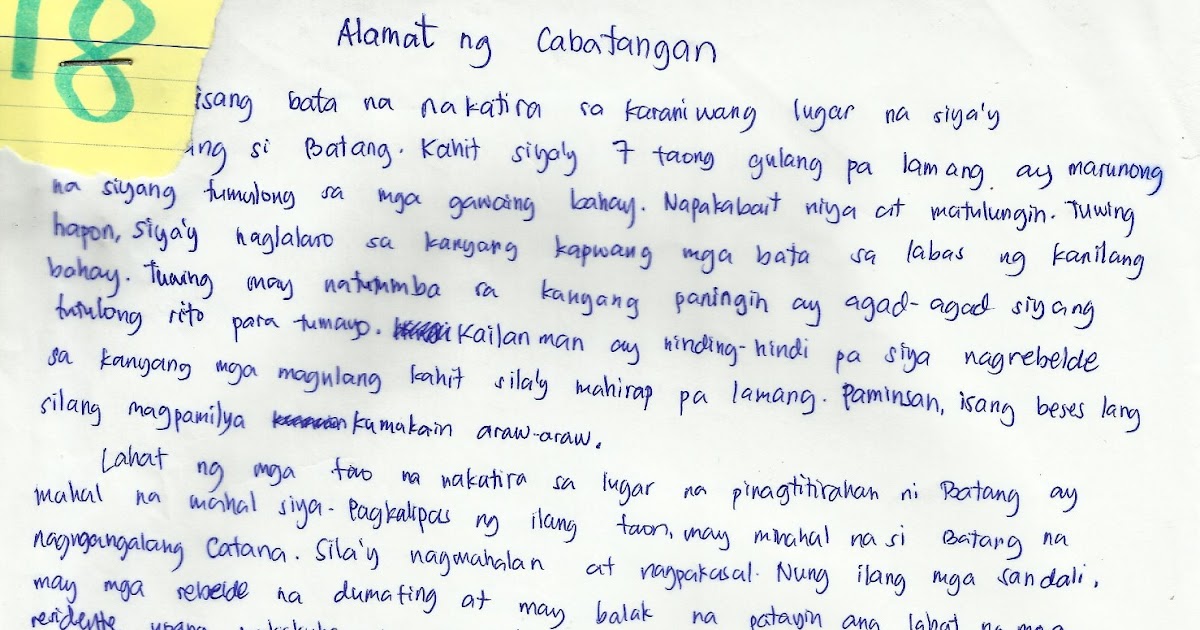 18
Alamat ng Cabatangan
isang bata na nakatira sa karaniwang lugar na siya'y
si Batang. Kahit siya'y 7 taong gulang pa lamang ay marunong
na siyang tumulong sa mga gawaing bahay. Napakabait niya at matulungin. Tuwing
hapon, siya'y naglalaro sa kanyang kapwang mga bata sa labas ng kanilang
bahay. Tuwing may natutumba sa kanyang paningin ay agad-agad siyang
tutulong rito para tumayo. Kailan man ay hinding-hindi pa siya nagrebelde
sa kanyang mga magulang kahit sila'y mahirap pa lamang. Paminsan, isang beses lang
silang magpamilya kumakain araw-araw.
Lahat ng mga tao na nakatira sa lugar na pinagtitirahan ni Batang ay
mahal na mahal siya. Pagkalipas ng ilang taon, may minahal na si Batang na
nagngangalang Catana. Sila'y nagmahalan at nagpakasal. Nung ilang mga sandali,
may mga rebelde na dumating at may balak na patayin ang lahat ng mga
residente upang